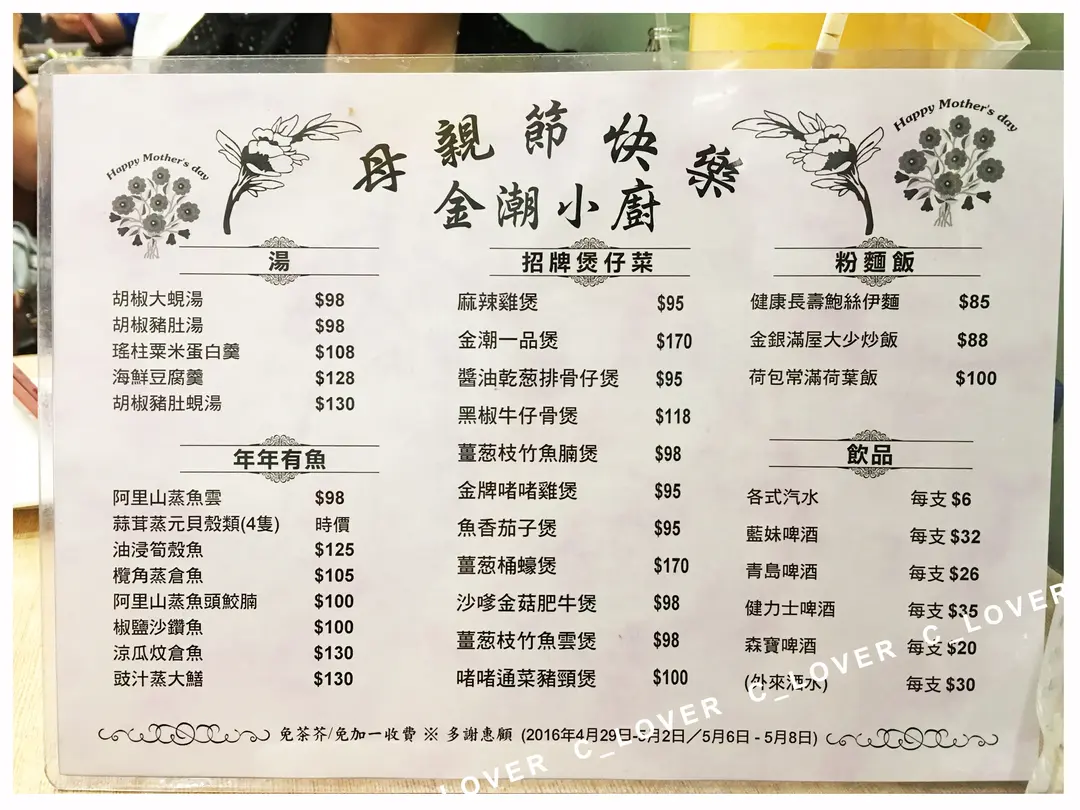 Happy Mother's day
Happy Mother's day
母親節快樂
金潮小廚
湯
胡椒大蜆湯 $98
胡椒豬肚湯 $98
瑤柱粟米蛋白羹 $108
海鮮豆腐羹 $128
胡椒豬肚蜆湯 $130
年年有魚
阿里山蒸魚雲 $98
蒜茸蒸元貝殼類(4隻) 時價
油浸筍殼魚 $125
欖角蒸倉魚 $105
阿里山蒸魚頭鮫腩 $100
椒鹽沙鑽魚 $100
涼瓜炆倉魚 $130
豉汁蒸大鱔 $130
招牌煲仔菜
麻辣雞煲 $95
金潮一品煲 $170
醬油乾葱排骨仔煲 $95
黑椒牛仔骨煲 $118
薑葱枝竹魚腩煲 $98
金牌啫啫雞煲 $95
魚香茄子煲 $95
薑葱桶蠔煲 $170
沙嗲金菇肥牛煲 $98
薑葱枝竹魚雲煲 $98
啫啫通菜豬頸煲 $100
粉麵飯
健康長壽鮑絲伊麵 $85
金銀滿屋大少炒飯 $88
荷包常滿荷葉飯 $100
飲品
各式汽水 每支 $6
藍妹啤酒 每支 $32
青島啤酒 每支 $26
健力士啤酒 每支 $35
森寶啤酒 每支 $20
(外來酒水) 每支 $30
免茶芥/免加一收費 ※ 多謝惠顧 (2016年4月29日-5月2日／5月6日 - 5月8日)
LOVER C_LOVER C_LOVER C_LOVER